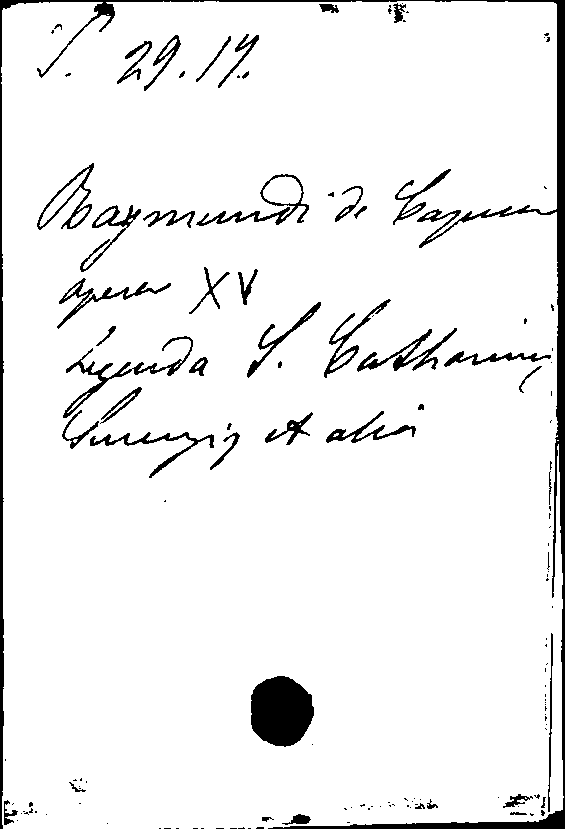 P. 29.14.
Raymundi de Capua
opera XV
Legenda S. Catharinę
Senensis et alia